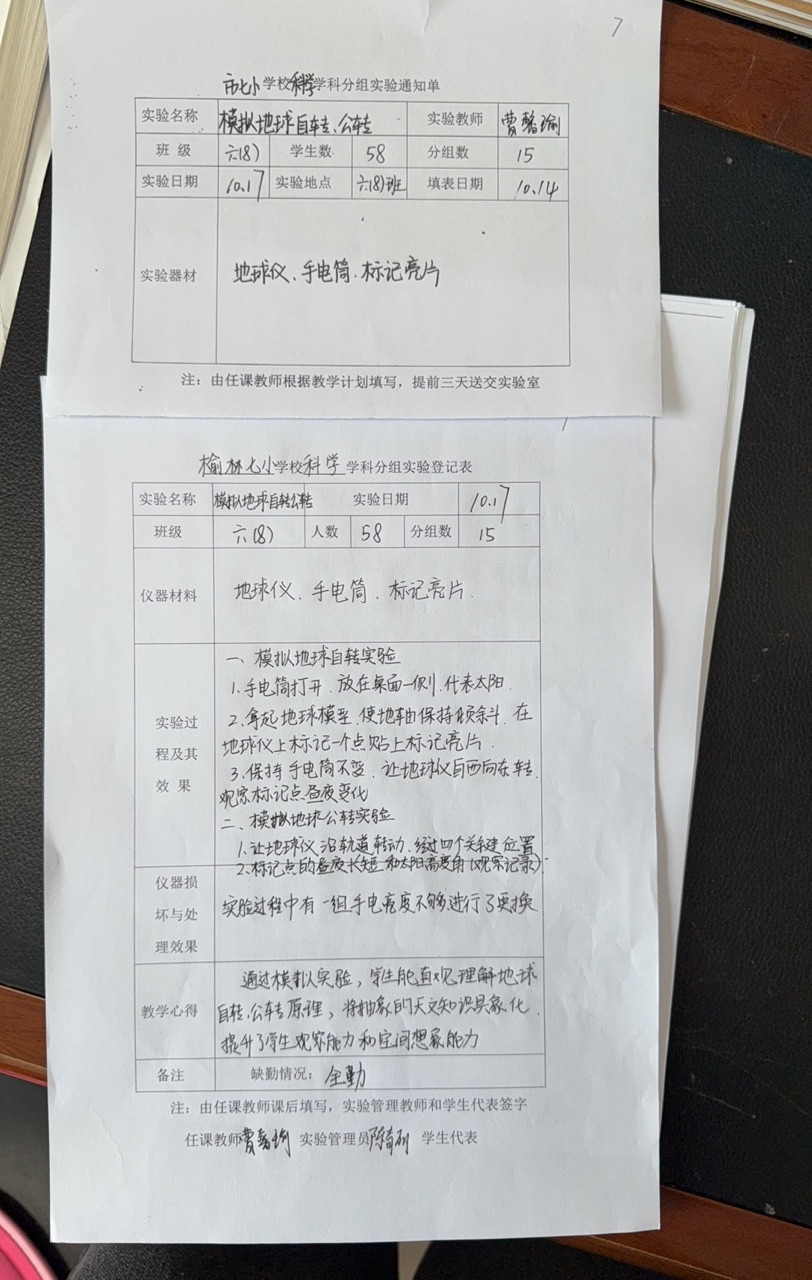 7
市七小学校科学学科分组实验通知单
实验名称 模拟地球自转、公转 实验教师 曹馨瑜
班 级 六(8) 学生数 58 分组数 15
实验日期 10.17 实验地点 六(8)班 填表日期 10.14
实验器材 地球仪、手电筒、标记亮片
注：由任课教师根据教学计划填写，提前三天送交实验室
榆林七小学校科学学科分组实验登记表
实验名称 模拟地球自转公转 实验日期 10.17
班级 六(8) 人数 58 分组数 15
仪器材料 地球仪、手电筒、标记亮片.
实验过
程及其
效 果
一、模拟地球自转实验
1.手电筒打开、放在桌面一侧、代表太阳.
2.拿起地球模型、使地轴保持倾斜、在
地球仪上标记一个点贴上标记亮片.
3.保持手电筒不变、让地球仪自西向东转.
观察标记点昼夜变化
二、模拟地球公转实验
1.让地球仪沿轨道转动、经过四个关键位置
2.标记点的昼夜长短和太阳高度角(观察记录).
仪器损
坏与处
理效果
实验过程中有一组手电亮度不够进行了更换
教学心得
通过模拟实验，学生能直观理解地球
自转、公转原理，将抽象的天文知识具象化、
提升了学生观察能力和空间想象能力
备注 缺勤情况：全勤
注：由任课教师课后填写，实验管理教师和学生代表签字
任课教师曹馨瑜 实验管理员陈 学生代表